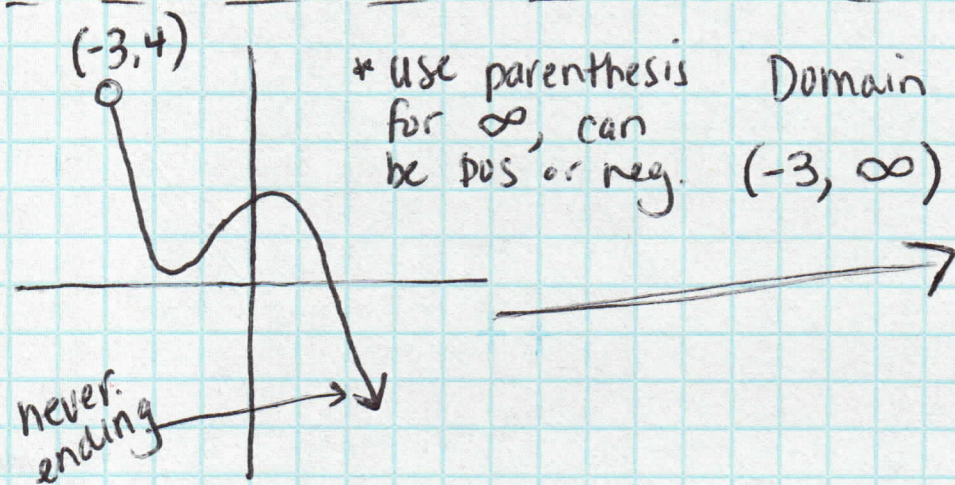 (-3,4)
* use parenthesis
for ∞, can
be pos or neg.
Domain
(-3, ∞)
never.
ending